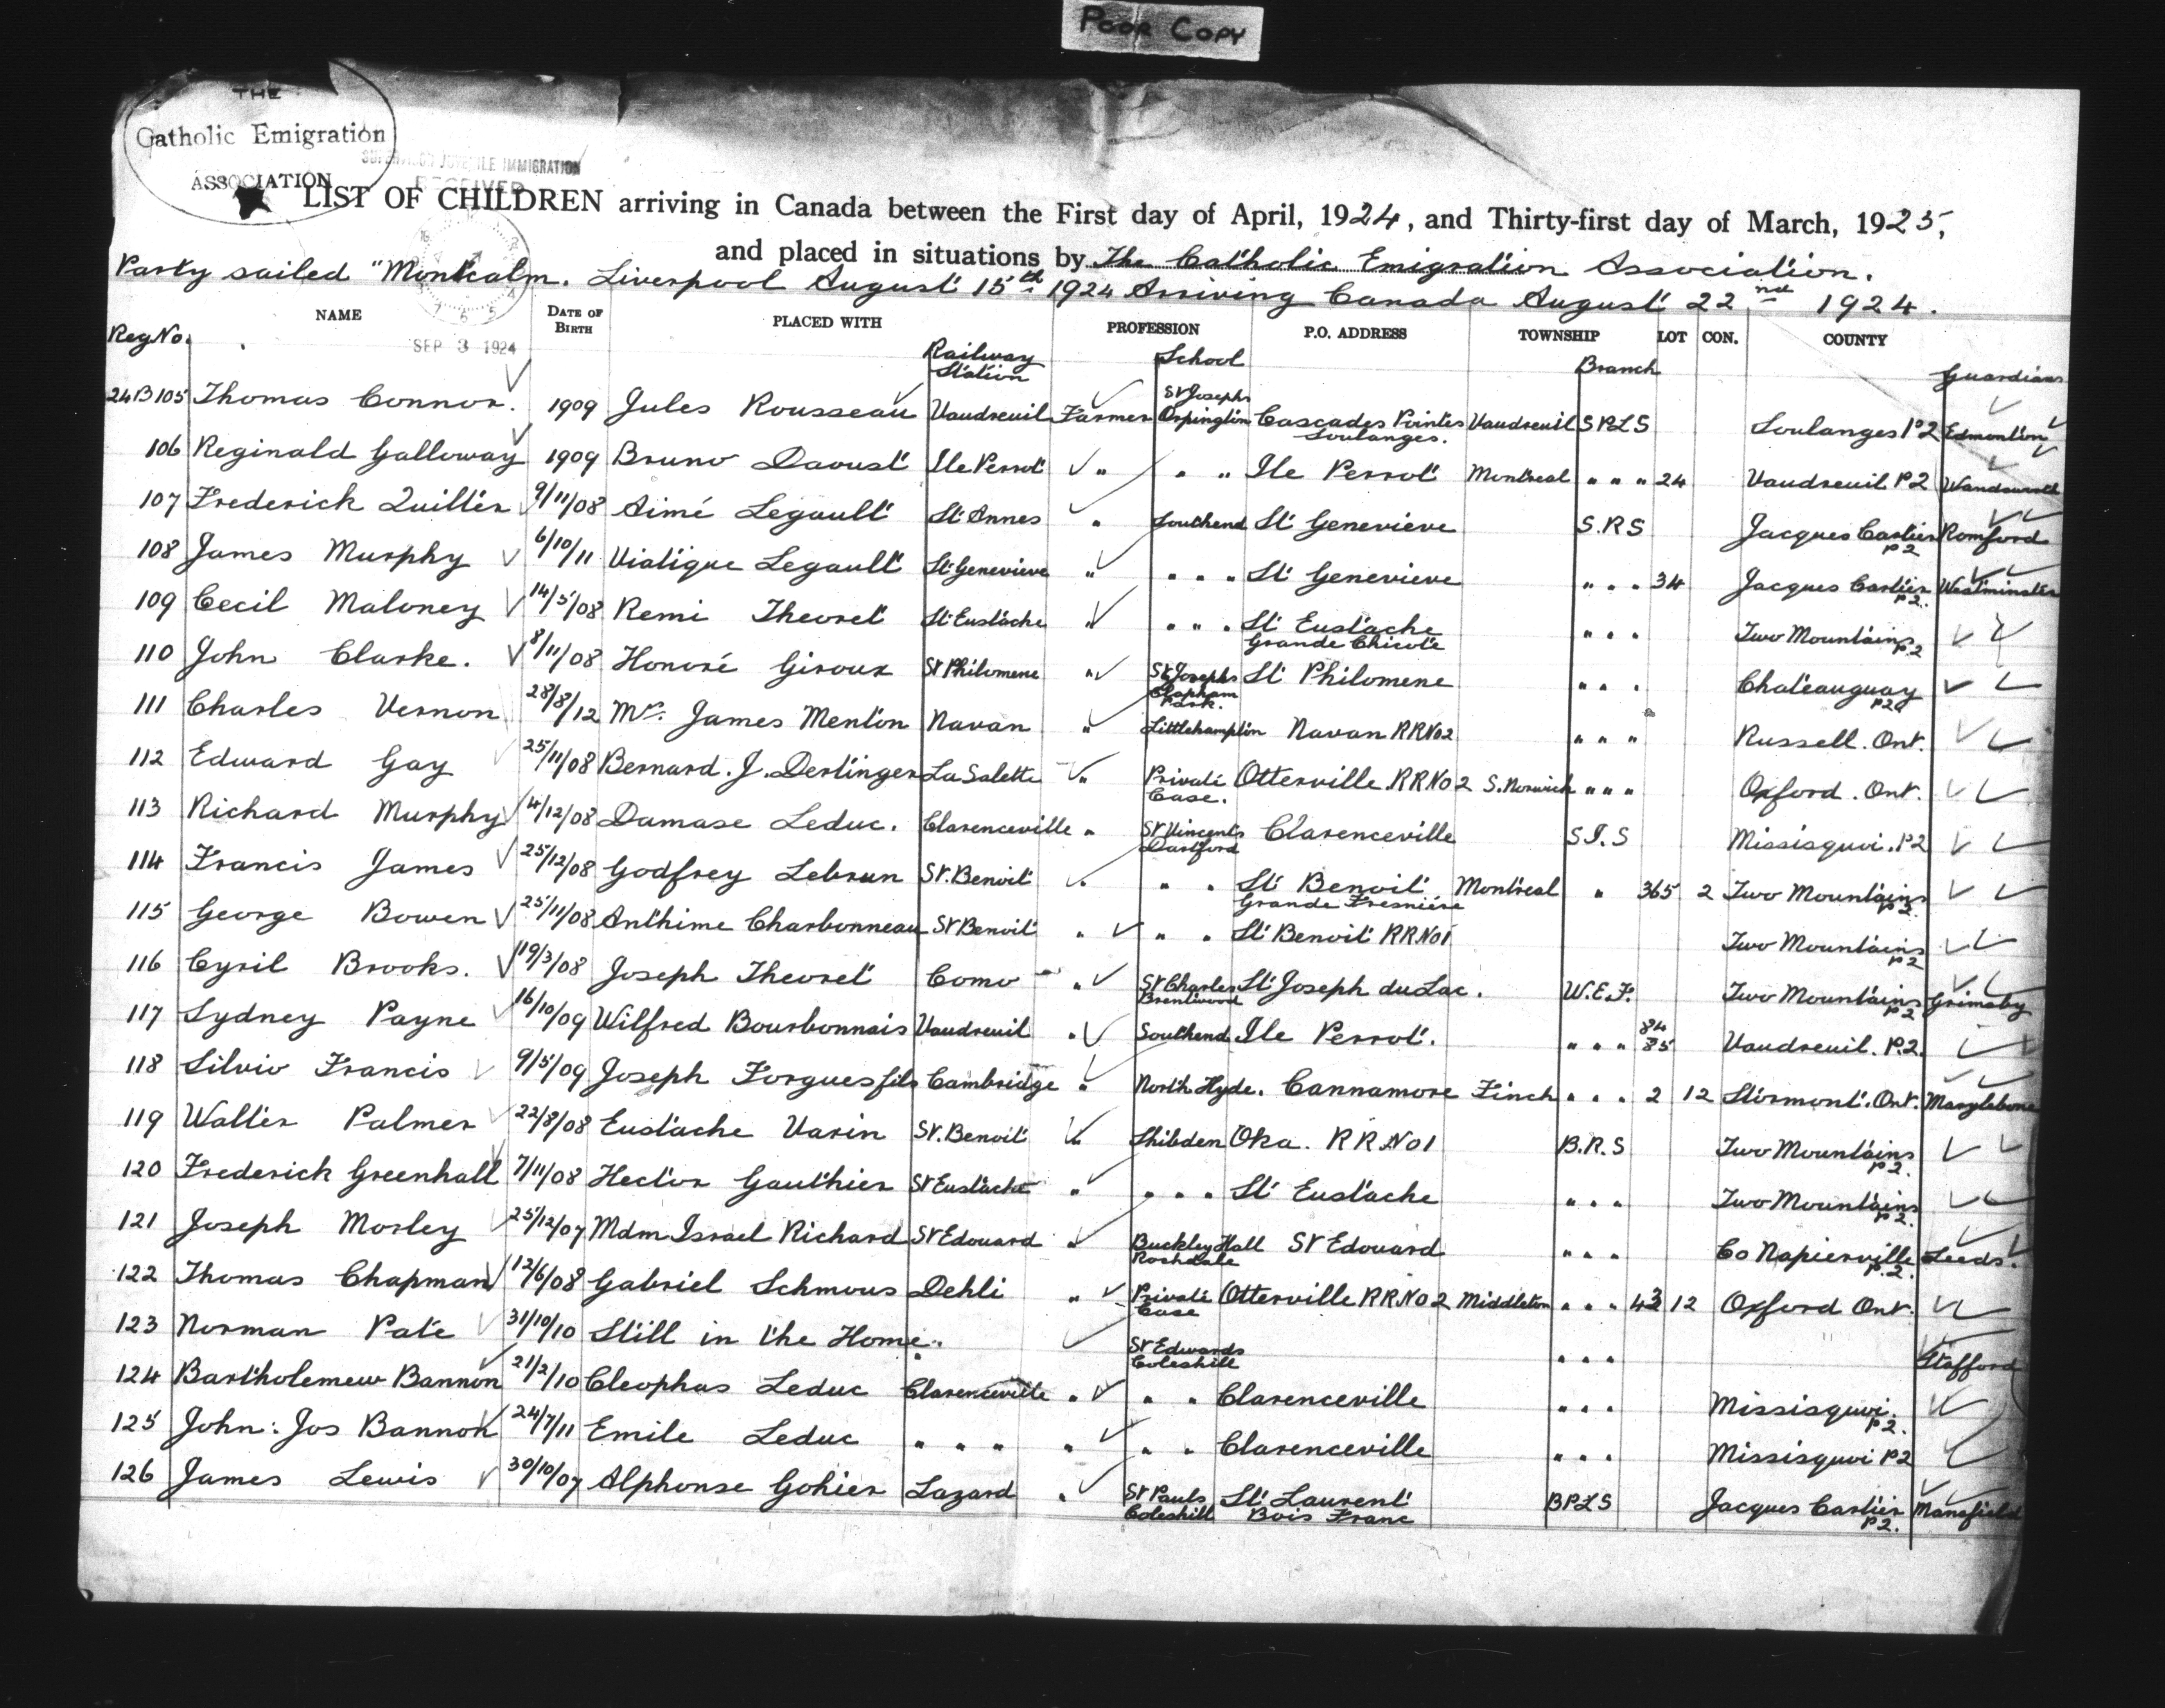 POOR COPY
THE
Catholic Emigration
ASSOCIATION
SUPERVISOR JUVENILE IMMIGRATION
RECEIVED
LIST OF CHILDREN arriving in Canada between the First day of April, 1924, and Thirty-first day of March, 1925,
and placed in situations by The Catholic Emigration Association.
Party sailed "Montcalm. Liverpool August 15th 1924 Arriving Canada August 22nd 1924.
SEP 3 1924
Reg No. NAME DATE OF BIRTH PLACED WITH Railway Station PROFESSION School P.O. ADDRESS TOWNSHIP Branch LOT CON. COUNTY Guardians
24B105 Thomas Connor. 1909 Jules Rousseau Vaudreuil Farmer St Josephs Orpington Cascades Pointes Soulanges. Vaudreuil SPLS Soulanges P2 Edmonton
106 Reginald Galloway 1909 Bruno Daoust Ile Perrot " " " Ile Perrot Montreal " " " 24 Vaudreuil P2 Wandsworth
107 Frederick Quilter 9/11/08 Aimé Legault St Annes " Southend St Genevieve S.R.S Jacques Cartier P2 Romford
108 James Murphy 6/10/11 Viatique Legault St Genevieve " " " " St Genevieve " " " 34 Jacques Cartier P2. Westminster
109 Cecil Maloney 14/5/08 Remi Theoret St Eustache " " " " St Eustache Grande Chicote " " " Two Mountains P2
110 John Clarke. 8/11/08 Honoré Giroux St Philomene " St Josephs Clapham Park. St Philomene " " " Chateauguay P2
111 Charles Vernon 28/8/12 Mr. James Menton Navan " Littlehampton Navan RRNo2 " " " Russell. Ont.
112 Edward Gay 25/11/08 Bernard. J. Dertinger La Salette " Private Case. Otterville RRNo2 S. Norwich " " " Oxford. Ont.
113 Richard Murphy 4/12/08 Damase Leduc. Clarenceville " St Vincents Dartford Clarenceville S.I.S Missisquoi. P2
114 Francis James 25/12/08 Godfrey Lebrun St. Benoit " " " St Benoit Grande Fresniére Montreal " 365 2 Two Mountains P2.
115 George Bowen 25/11/08 Anthime Charbonneau St Benoit " " " St Benoit RRNo1 Two Mountains P2
116 Cyril Brooks. 19/3/08 Joseph Theoret Como " St Charles Brentwood St Joseph du Lac. W.E.F. Two Mountains P2 Grimsby
117 Sydney Payne 16/10/09 Wilfred Bourbonnais Vaudreuil " Southend Ile Perrot. " " " 84 85 Vaudreuil. P.2.
118 Silvio Francis 9/5/09 Joseph Forgues fils Cambridge " North Hyde. Cannamore Finch " " " 2 12 Stormont. Ont. Marylebone
119 Walter Palmer 22/8/08 Eustache Varin St. Benoit " Shibden Oka. RR No1 B.R.S Two Mountains P2.
120 Frederick Greenhall 7/11/08 Hector Gauthier St Eustache " " " " St Eustache " " " Two Mountains P2.
121 Joseph Morley 25/12/07 Mdm Israel Richard St Edouard " Buckley Hall Rochdale St Edouard " " " Co Napierville P.2. Leeds.
122 Thomas Chapman 12/6/08 Gabriel Schmous Dehli " Private Case Otterville RRNo2 Middleton " " " 43 12 Oxford Ont.
123 Norman Pate 31/10/10 Still in the Home. St Edwards Coleshill " " " Stafford
124 Bartholemew Bannon 21/2/10 Cleophas Leduc Clarenceville " " " Clarenceville " " " Missisquoi. P2.
125 John: Jos Bannon 24/7/11 Emile Leduc " " " " " " Clarenceville " " " Missisquoi P2
126 James Lewis 30/10/07 Alphonse Gohier Lazard " St Pauls Coleshill St Laurent Bois Franc BPLS Jacques Cartier P2. Mansfield